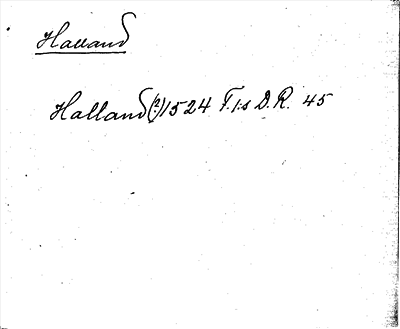 Halland
Halland (?) 1524 F.I:s D.R. 45